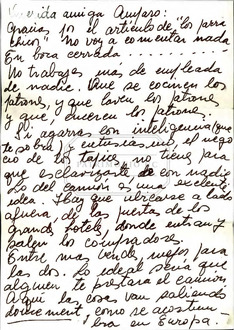 Querida amiga Amparo:
Gracias por el artículo de "los parra
chicos". No voy a comentar nada
En boca cerrada.........
No trabajes mas de empleada
de nadie. Que se cocinen los
patrones, y que laven los patrones
y que, enceren los patrones.
Si agarras con inteligencia (que
te sobra) y entusiasmo, el nego
cio de los tapices, no tienes para
que esclavizarte con nadie
Lo del camión es una excelente
idea. Hay que ubicarse al lado
afuera, de las puertas de los
grandes hotels, donde entran y
salen los compradores.
Entre mas vende, mejor para
las dos. Lo ideal sería que
alguien te prestara el camión
Aquí las cosas van saliendo
doucement, como se acostum
bra en Europa.